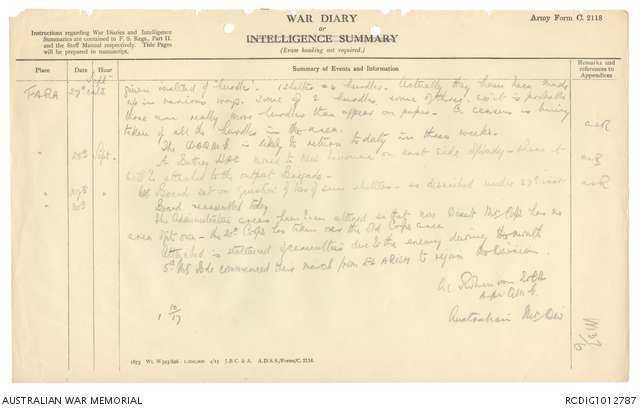 WAR DIARY
or
INTELLIGENCE SUMMARY
(Erase heading not required.)
Army Form C. 2118
Instructions regarding War Diaries and Intelligence
Summaries are contained in F. S. Regs., Part II.
and the Staff Manual respectively. Title Pages
will be prepared in manuscript.
Place Date Hour Summary of Events and Information Remarks and references to Appendices
Sept
FARA 27th given instead of "hurdles". 1 shelter = 2 hurdles. Actually they have been made
up in various ways. Some of 2 hurdles some of three, so it is probable
there are really more hurdles than appear on paper. A census is being
taken of all the hurdles in the area.
The is likely to return to duty in three weeks.
" 28th Sept. A moved to on east side - where it
will be attached to the outpost Brigade.
" 29th Board sat on question of loss of shelters - as described under 27th inst
" 30th Board reassembled today.
The Administrative areas have been altered so that now Desert Mtd Corps has no
area of its own - the 20th Corps has taken over the old Corps area
Attached is statement of casualties due to the enemy during the month
5th Mtd Bde commenced their march from EL ARISH to rejoin the Division.
Lt Col
Australian Mtd Div
1 10/17
1875 Wt. W593/826 1,000,000 4/15 J.B.C. & A. A.D.S.S./Forms/C. 2118.
AUSTRALIAN WAR MEMORIAL
RCDIG1012787